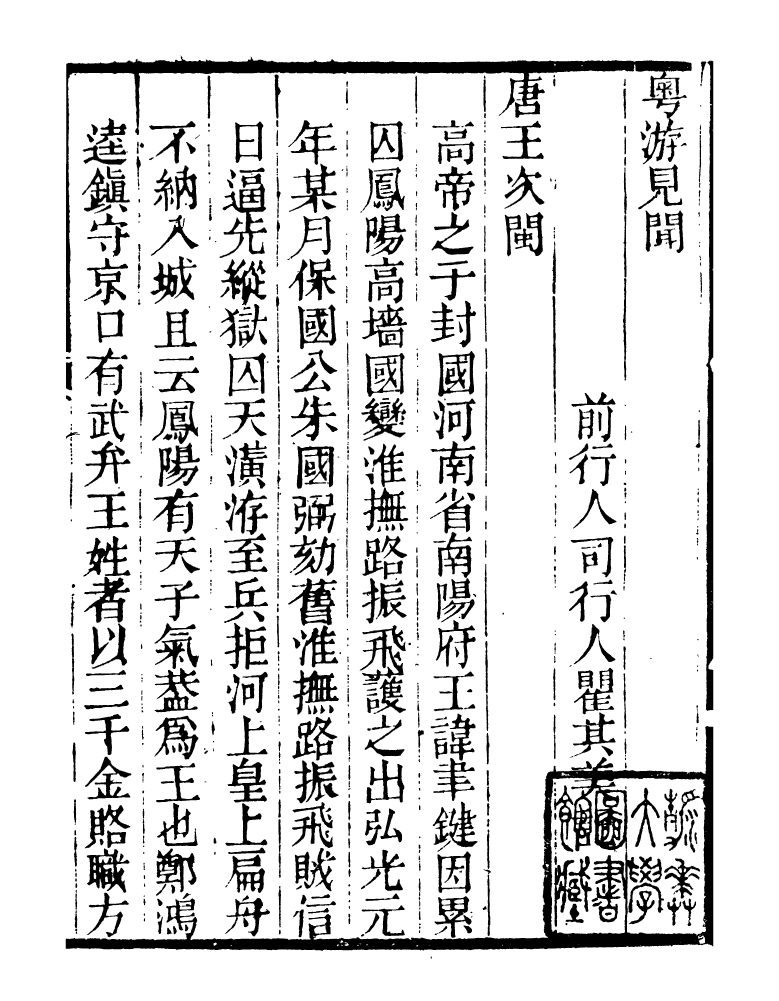 粤游見聞
前行人司行人瞿其美
唐王次閩
高帝之于封國河南省南陽府王諱聿鍵因累
囚鳳陽高墻國變淮撫路振飛護之出弘光元
年某月保國公朱國弼劾舊淮撫路振飛賊信
日逼先縱獄囚天潢洊至兵拒河上皇上扁舟
不納入城且云鳳陽有天子氣葢爲王也鄭鴻
逵鎭守京口有武弁王姓者以三千金賂職方
大學
圖書